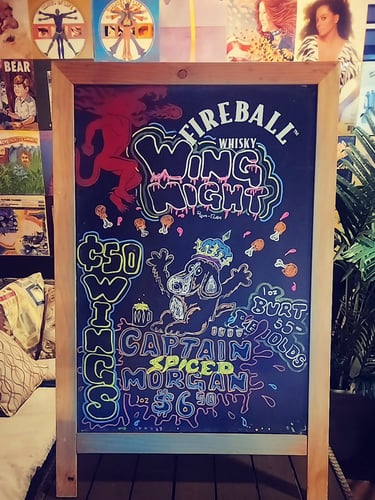 BEAR
FIREBALL™
WHISKY
WING
NIGHT
¢50
WINGS
BURT
$5
REYNOLDS
CAPTAIN
SPICED
MORGAN
1oz $6.50